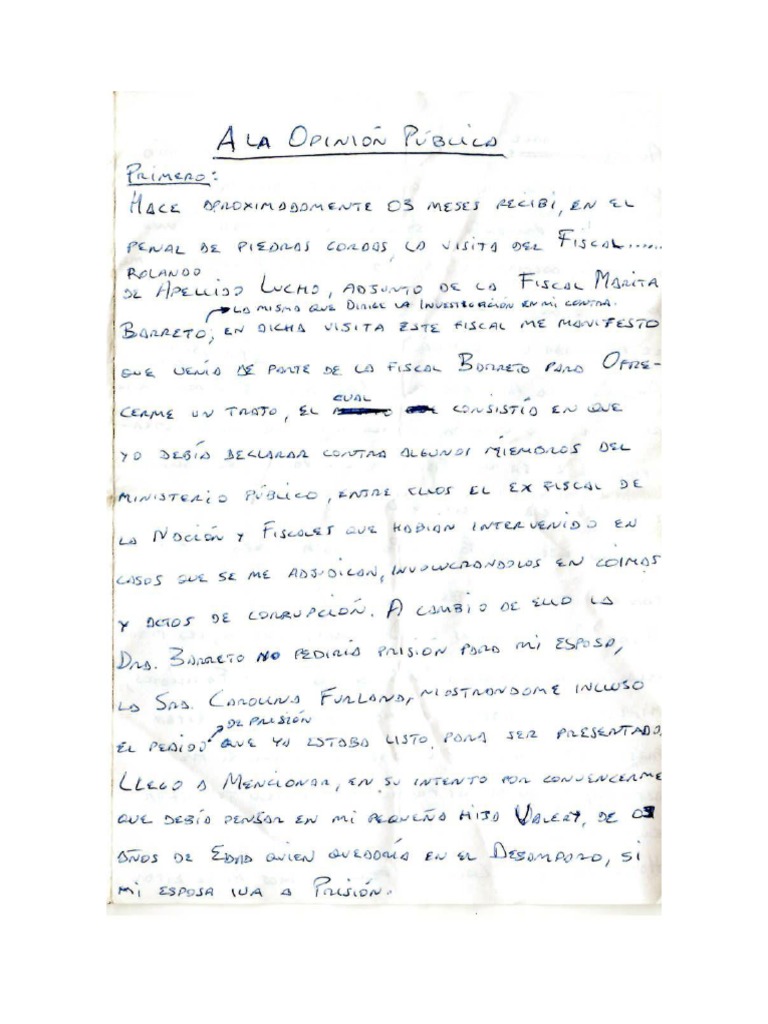 A LA OPINIÓN PÚBLICA
PRIMERO:
HACE APROXIMADAMENTE 03 MESES RECIBI, EN EL
PENAL DE PIEDRAS GORDAS, LA VISITA DEL FISCAL......
ROLANDO
DE APELLIDO LUCHO, ADJUNTO DE LA FISCAL MARITA
LA MISMA QUE DIRIGE LA INVESTIGACIÓN EN MI CONTRA.
BARRETO, EN DICHA VISITA ESTE FISCAL ME MANIFESTO
QUE VENÍA DE PARTE DE LA FISCAL BARRETO PARA OFRE-
CUAL
CERME UN TRATO, EL CONSISTÍA EN QUE
YO DEBÍA DECLARAR CONTRA ALGUNOS MIEMBROS DEL
MINISTERIO PÚBLICO, ENTRE ELLOS EL EX FISCAL DE
LA NACIÓN Y FISCALES QUE HABÍAN INTERVENIDO EN
CASOS QUE SE ME ADJUDICAN, INVOLUCRANDOLOS EN COIMAS
Y ACTOS DE CORRUPCIÓN. A CAMBIO DE ELLO LA
DRA. BARRETO NO PEDIRÍA PRISIÓN PARA MI ESPOSA,
LA SRA. CAROLINA FURLAND, MOSTRANDOME INCLUSO
DE PRISIÓN
EL PEDIDO QUE YA ESTABA LISTO PARA SER PRESENTADO.
LLEGO A MENCIONAR, EN SU INTENTO POR CONVENCERME
QUE DEBÍA PENSAR EN MI PEQUEÑA HIJA VALERY, DE 03
AÑOS DE EDAD QUIEN QUEDARÍA EN EL DESAMPARO, SI
MI ESPOSA IVA A PRISIÓN.